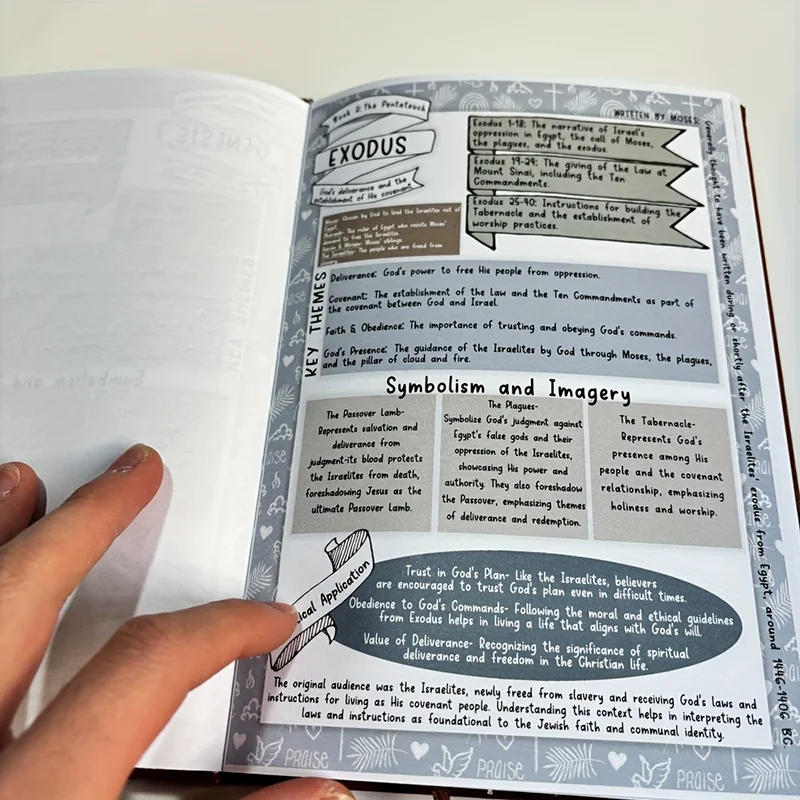 Book 2: The Pentateuch
EXODUS
God's deliverance and the
establishment of His covenant
WRITTEN BY MOSES:
Generally thought to have been written during or shortly after the Israelites' exodus from Egypt, around 1446-1406 BC
Exodus 1-18: The narrative of Israel's
oppression in Egypt, the call of Moses,
the plagues, and the exodus.
Exodus 19-24: The giving of the Law at
Mount Sinai, including the Ten
Commandments.
Exodus 25-40: Instructions for building the
Tabernacle and the establishment of
worship practices.
Moses: Chosen by God to lead the Israelites out of
Egypt.
Pharaoh: The ruler of Egypt who resists Moses'
demand to free the Israelites.
Aaron & Miriam: Moses' siblings.
The Israelites: The people who are freed from
slavery.
KEY THEMES
Deliverance: God's power to free His people from oppression.
Covenant: The establishment of the Law and the Ten Commandments as part of
the covenant between God and Israel.
Faith & Obedience: The importance of trusting and obeying God's commands.
God's Presence: The guidance of the Israelites by God through Moses, the plagues,
and the pillar of cloud and fire.
Symbolism and Imagery
The Passover Lamb-
Represents salvation and
deliverance from
judgment-its blood protects
the Israelites from death,
foreshadowing Jesus as the
ultimate Passover Lamb.
The Plagues-
Symbolize God's judgment against
Egypt's false gods and their
oppression of the Israelites,
showcasing His power and
authority. They also foreshadow
the Passover, emphasizing themes
of deliverance and redemption.
The Tabernacle-
Represents God's
presence among His
people and the covenant
relationship, emphasizing
holiness and worship.
ical Application
Trust in God's Plan- Like the Israelites, believers
are encouraged to trust God's plan even in difficult times.
Obedience to God's Commands- Following the moral and ethical guidelines
from Exodus helps in living a life that aligns with God's will.
Value of Deliverance- Recognizing the significance of spiritual
deliverance and freedom in the Christian life.
The original audience was the Israelites, newly freed from slavery and receiving God's laws and
instructions for living as His covenant people. Understanding this context helps in interpreting the
laws and instructions as foundational to the Jewish faith and communal identity.
PRAISE
PRAISE
PRAISE